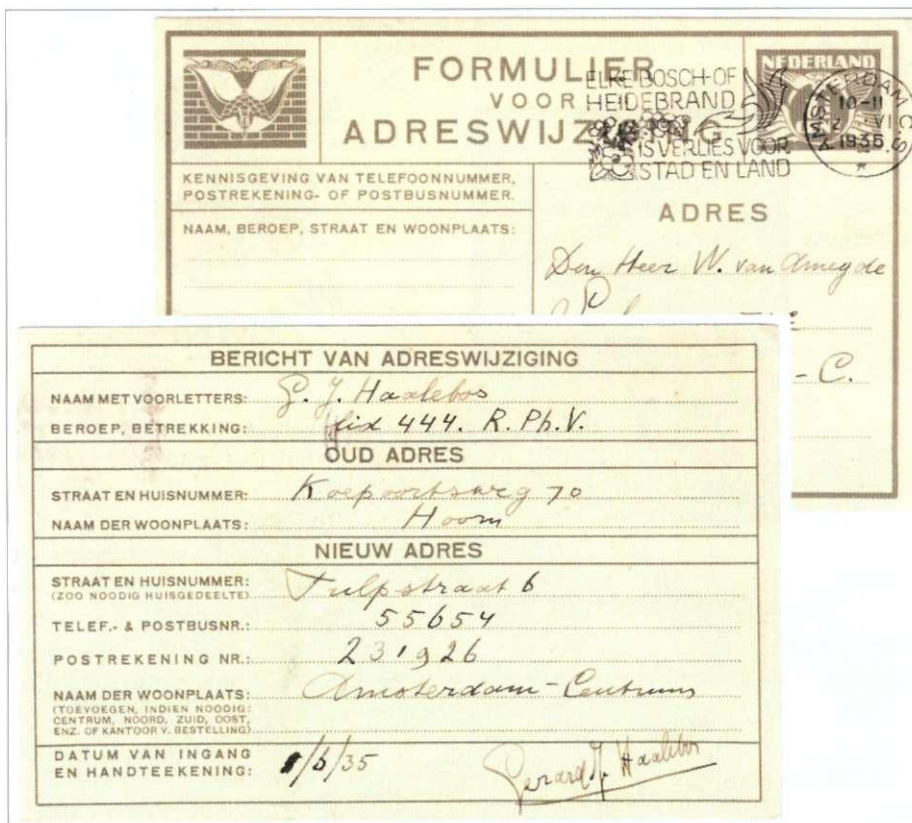 FORMULIER
VOOR
ADRESWIJZIGING
NEDERLAND
ELKE BOSCH- OF
HEIDEBRAND
IS VERLIES VOOR
STAD EN LAND
AMSTERDAM C.S.
10-11
VI
1935
KENNISGEVING VAN TELEFOONNUMMER,
POSTREKENING- OF POSTBUSNUMMER.
NAAM, BEROEP, STRAAT EN WOONPLAATS:
ADRES
Den Heer W. van
- C.
BERICHT VAN ADRESWIJZIGING
NAAM MET VOORLETTERS: G. J. Haalebos
BEROEP, BETREKKING: lid 444. R. Ph. V.
OUD ADRES
STRAAT EN HUISNUMMER: Koepoortsweg 70
NAAM DER WOONPLAATS: Hoorn
NIEUW ADRES
STRAAT EN HUISNUMMER: Tulpstraat 6
(ZOO NOODIG HUISGEDEELTE)
TELEF.- & POSTBUSNR.: 55654
POSTREKENING NR.: 231926
NAAM DER WOONPLAATS: Amsterdam-Centrum
(TOEVOEGEN, INDIEN NOODIG:
CENTRUM, NOORD, ZUID, OOST,
ENZ. OF KANTOOR V. BESTELLING)
DATUM VAN INGANG
EN HANDTEEKENING: 1/6/35 Gerard J. Haalebos